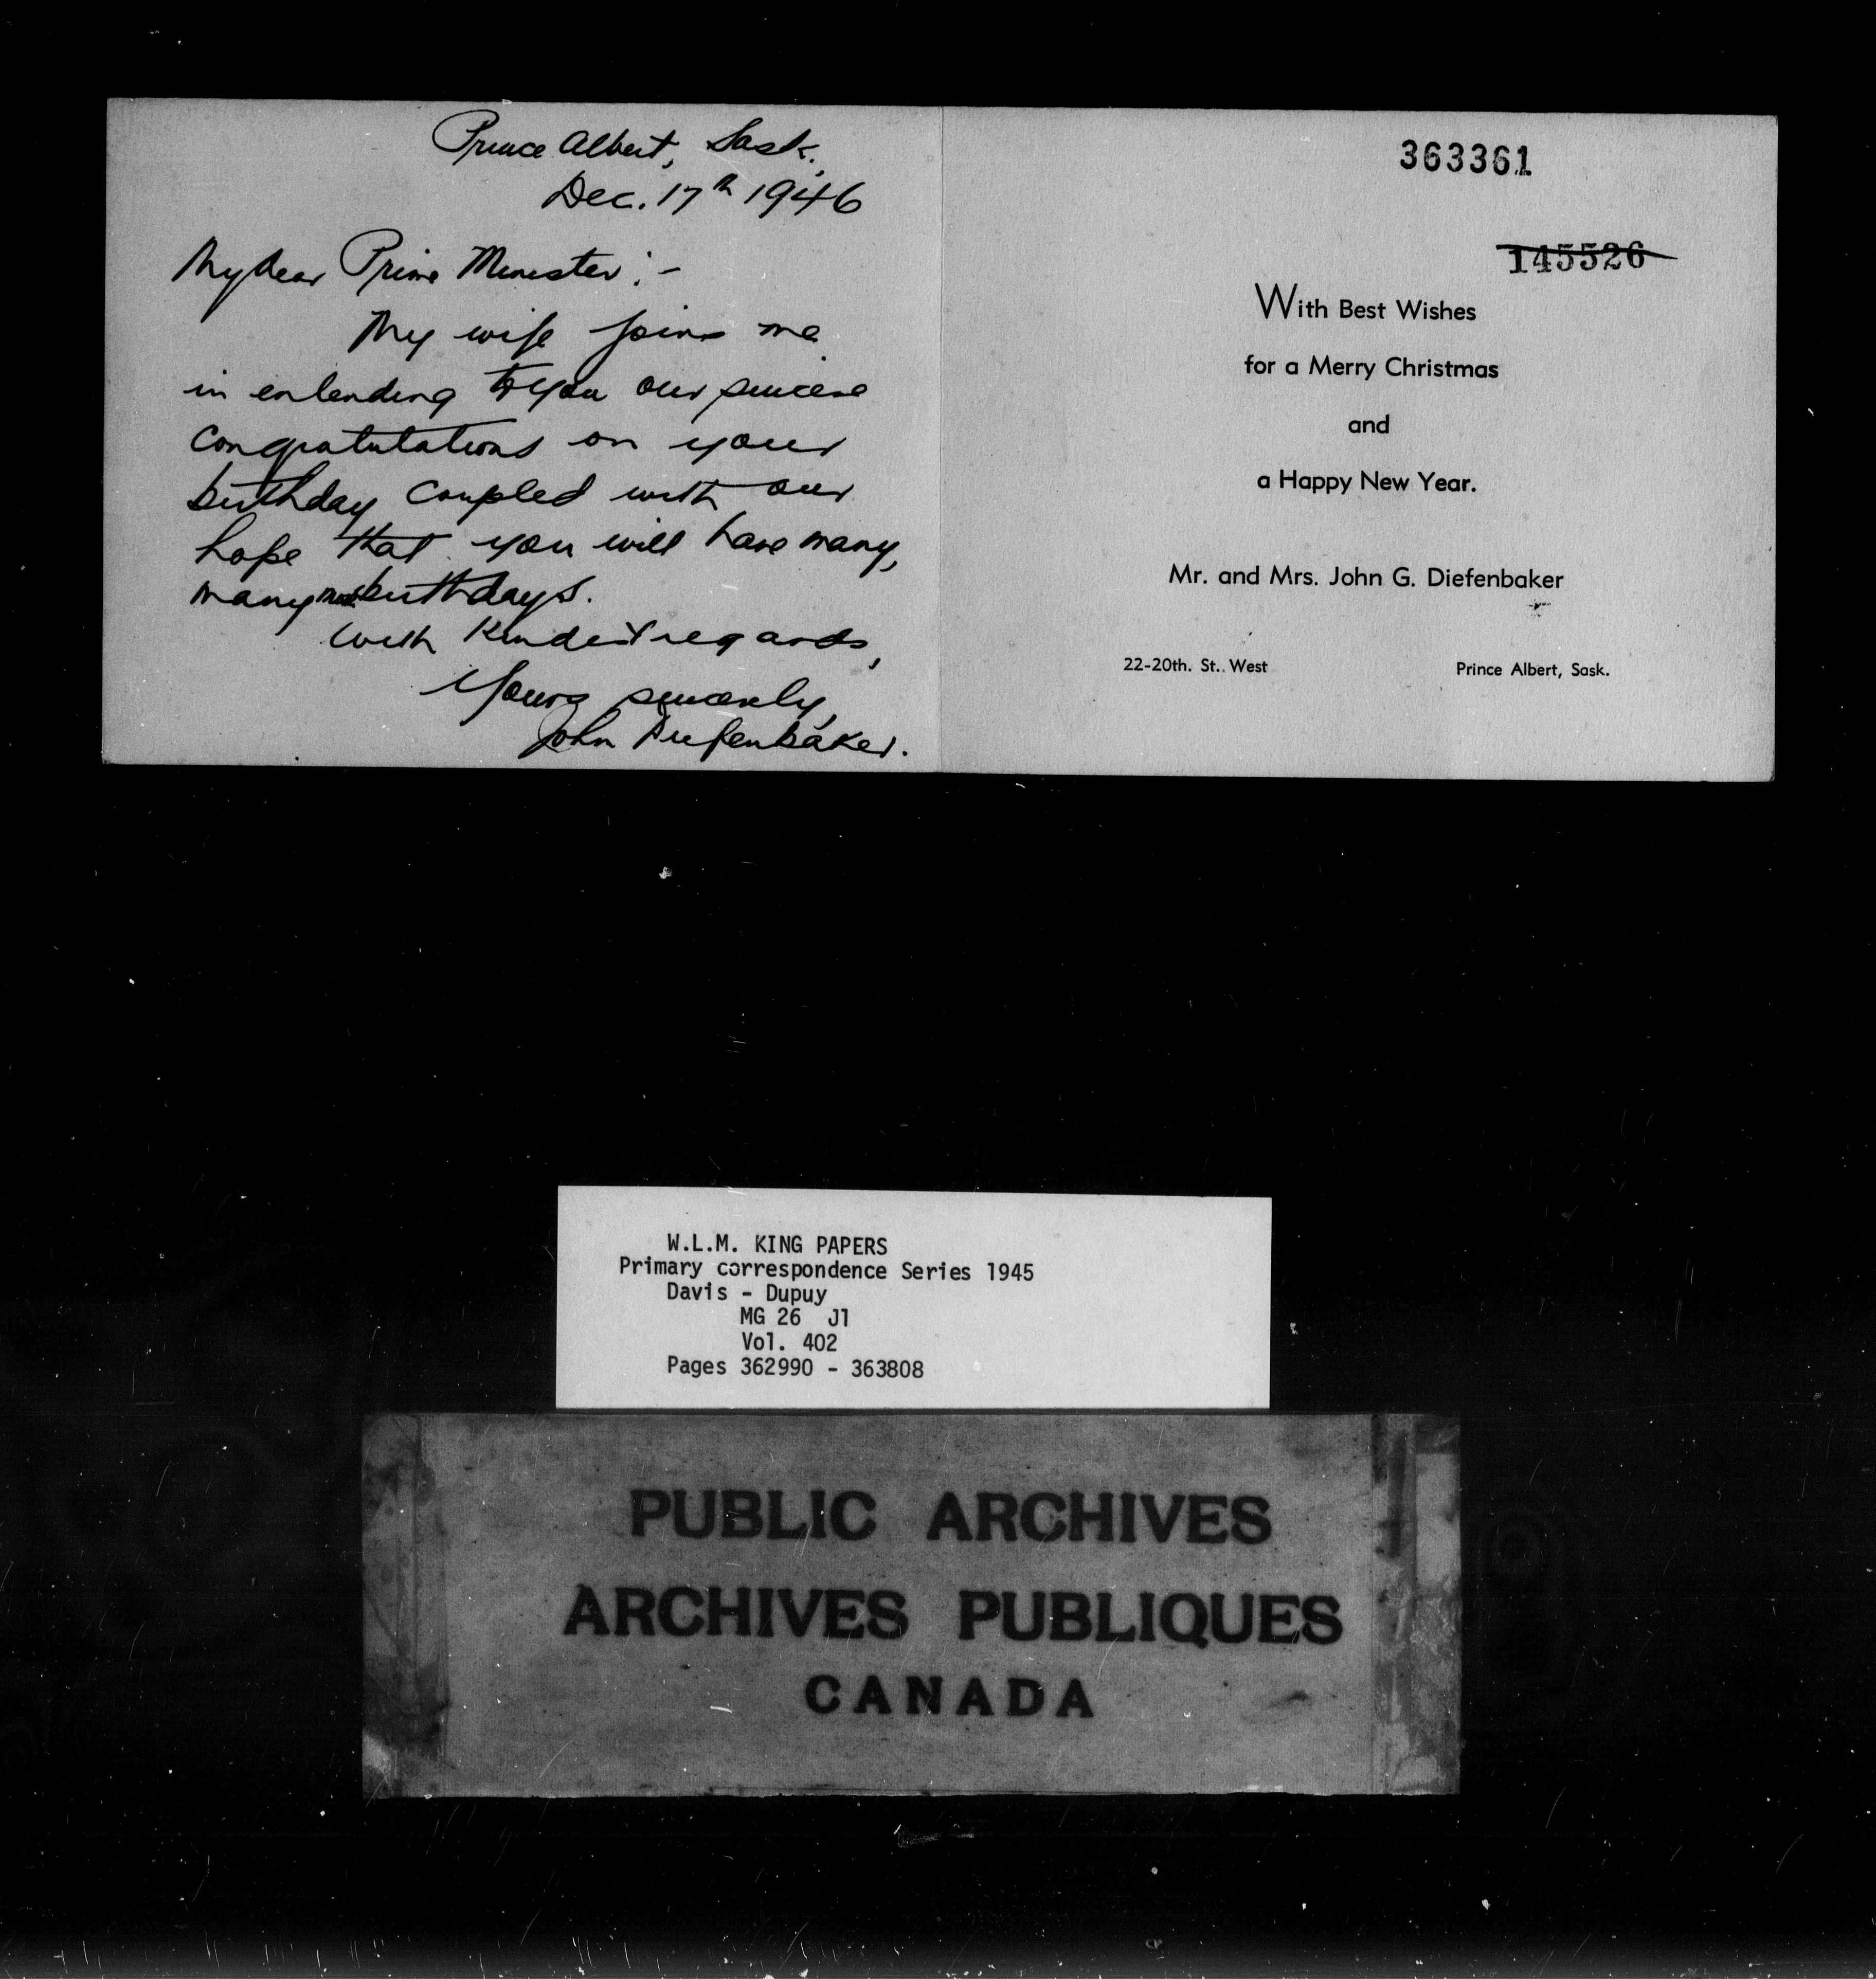 Prince Albert, Sask.,
Dec. 17th 1946
My dear Prime Minister:-
My wife joins me
in extending to you our sincere
congratulations on your
birthday coupled with our
hope that you will have many,
many more birthdays.
With kindest regards,
Yours sincerely,
John Diefenbaker.
363361
145526
With Best Wishes
for a Merry Christmas
and
a Happy New Year.
Mr. and Mrs. John G. Diefenbaker
22-20th. St. West Prince Albert, Sask.
W.L.M. KING PAPERS
Primary correspondence Series 1945
Davis - Dupuy
MG 26 J1
Vol. 402
Pages 362990 - 363808
PUBLIC ARCHIVES
ARCHIVES PUBLIQUES
CANADA